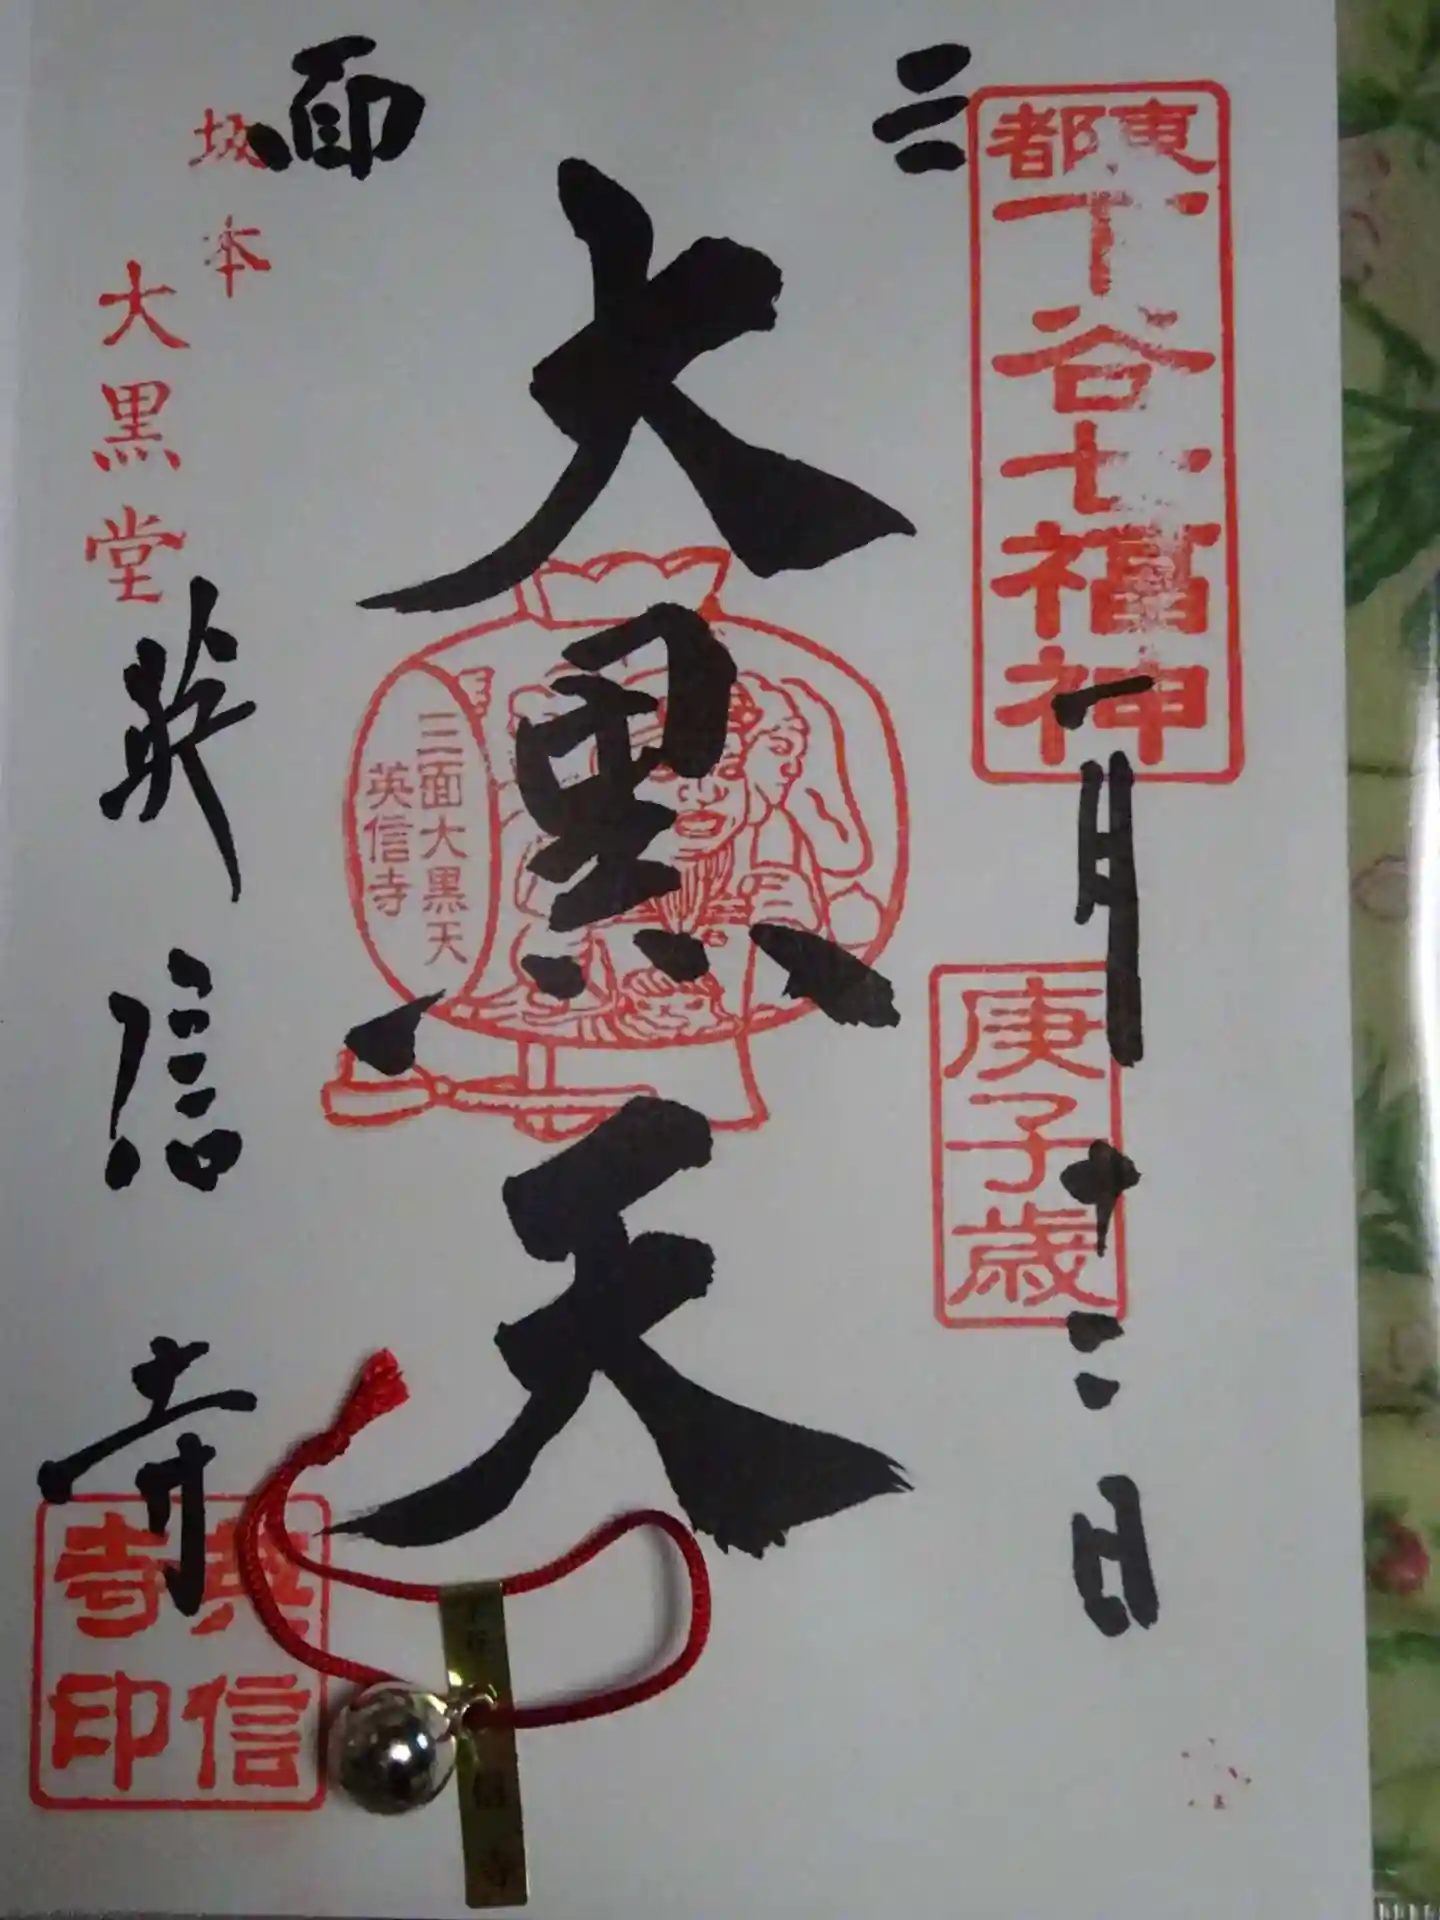 東都
下谷七福神
一月十二日
庚子歳
三
面
大黒天
三面大黒天
英信寺
坂本
大黒堂
英信寺
英信
寺印